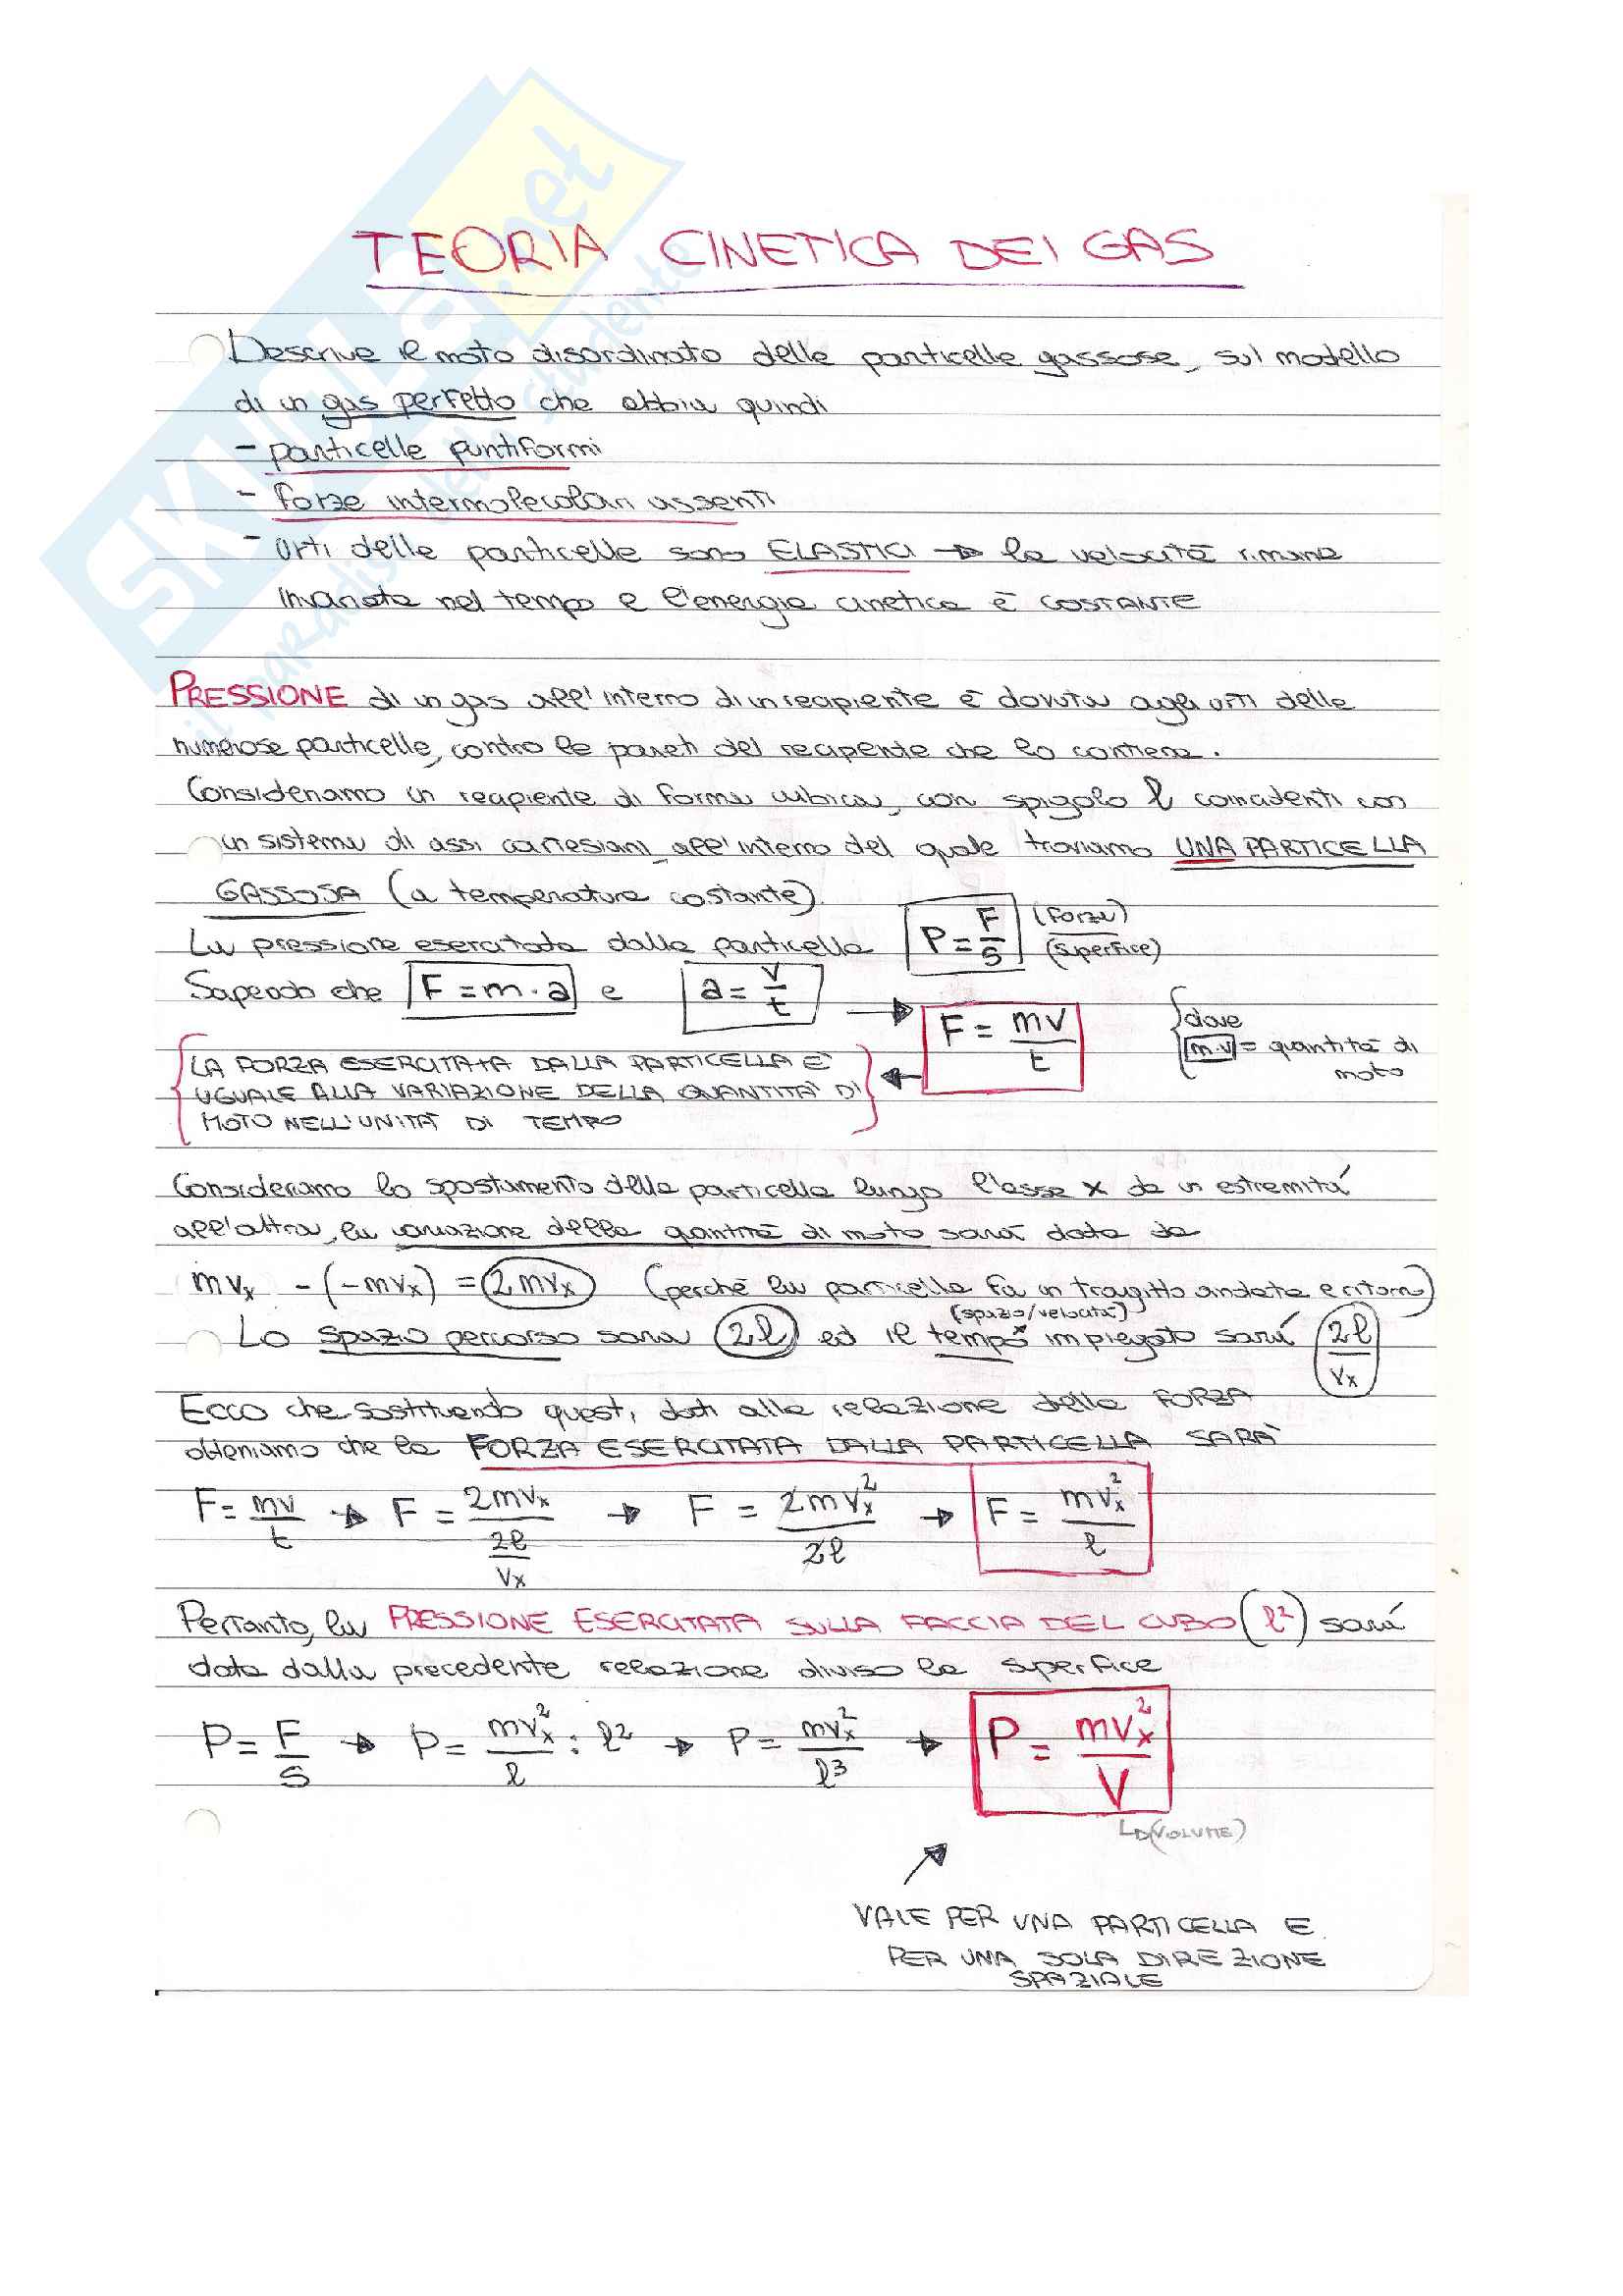 SKUOLA.net
il paradiso dello studente
TEORIA CINETICA DEI GAS
Descrive il moto disordinato delle particelle gassose, sul modello
di un gas perfetto che abbia quindi
- particelle puntiformi
- forze intermolecolari assenti
- urti delle particelle sono ELASTICI → la velocità rimane
invariata nel tempo e l'energia cinetica è COSTANTE
PRESSIONE di un gas all'interno di un recipiente è dovuta agli urti delle
numerose particelle, contro le pareti del recipiente che lo contiene.
Consideriamo un recipiente di forma cubica, con spigolo l coincidenti con
un sistema di assi cartesiani, all'interno del quale troviamo UNA PARTICELLA
GASSOSA (a temperatura costante)
La pressione esercitata dalla particella P = F/S (forza)/(superfice)
Sapendo che F = m · a e a = v/t → F = mv/t { dove m·v = quantità di moto
{ LA FORZA ESERCITATA DALLA PARTICELLA E' } ←
UGUALE ALLA VARIAZIONE DELLA QUANTITA' DI
MOTO NELL'UNITA' DI TEMPO
Consideriamo lo spostamento della particella lungo l'asse x da un estremità
all'altra, la variazione della quantità di moto sarà data da
mvₓ - (-mvₓ) = 2mvₓ (perché la particella fa un tragitto andata e ritorno)
(spazio/velocità)
Lo spazio percorso sarà 2l ed il tempo impiegato sarà 2l/vₓ
Ecco che sostituendo questi dati alla relazione della FORZA
otteniamo che la FORZA ESERCITATA DALLA PARTICELLA SARÀ
F = mv/t → F = 2mvₓ/(2l/vₓ) → F = 2mvₓ²/2l → F = mvₓ²/l
Pertanto, la PRESSIONE ESERCITATA SULLA FACCIA DEL CUBO (l²) sarà
data dalla precedente relazione diviso la superfice
P = F/S → P = mvₓ²/l : l² → P = mvₓ²/l³ → P = mvₓ²/V
(VOLUME)
VALE PER UNA PARTICELLA E
PER UNA SOLA DIREZIONE
SPAZIALE